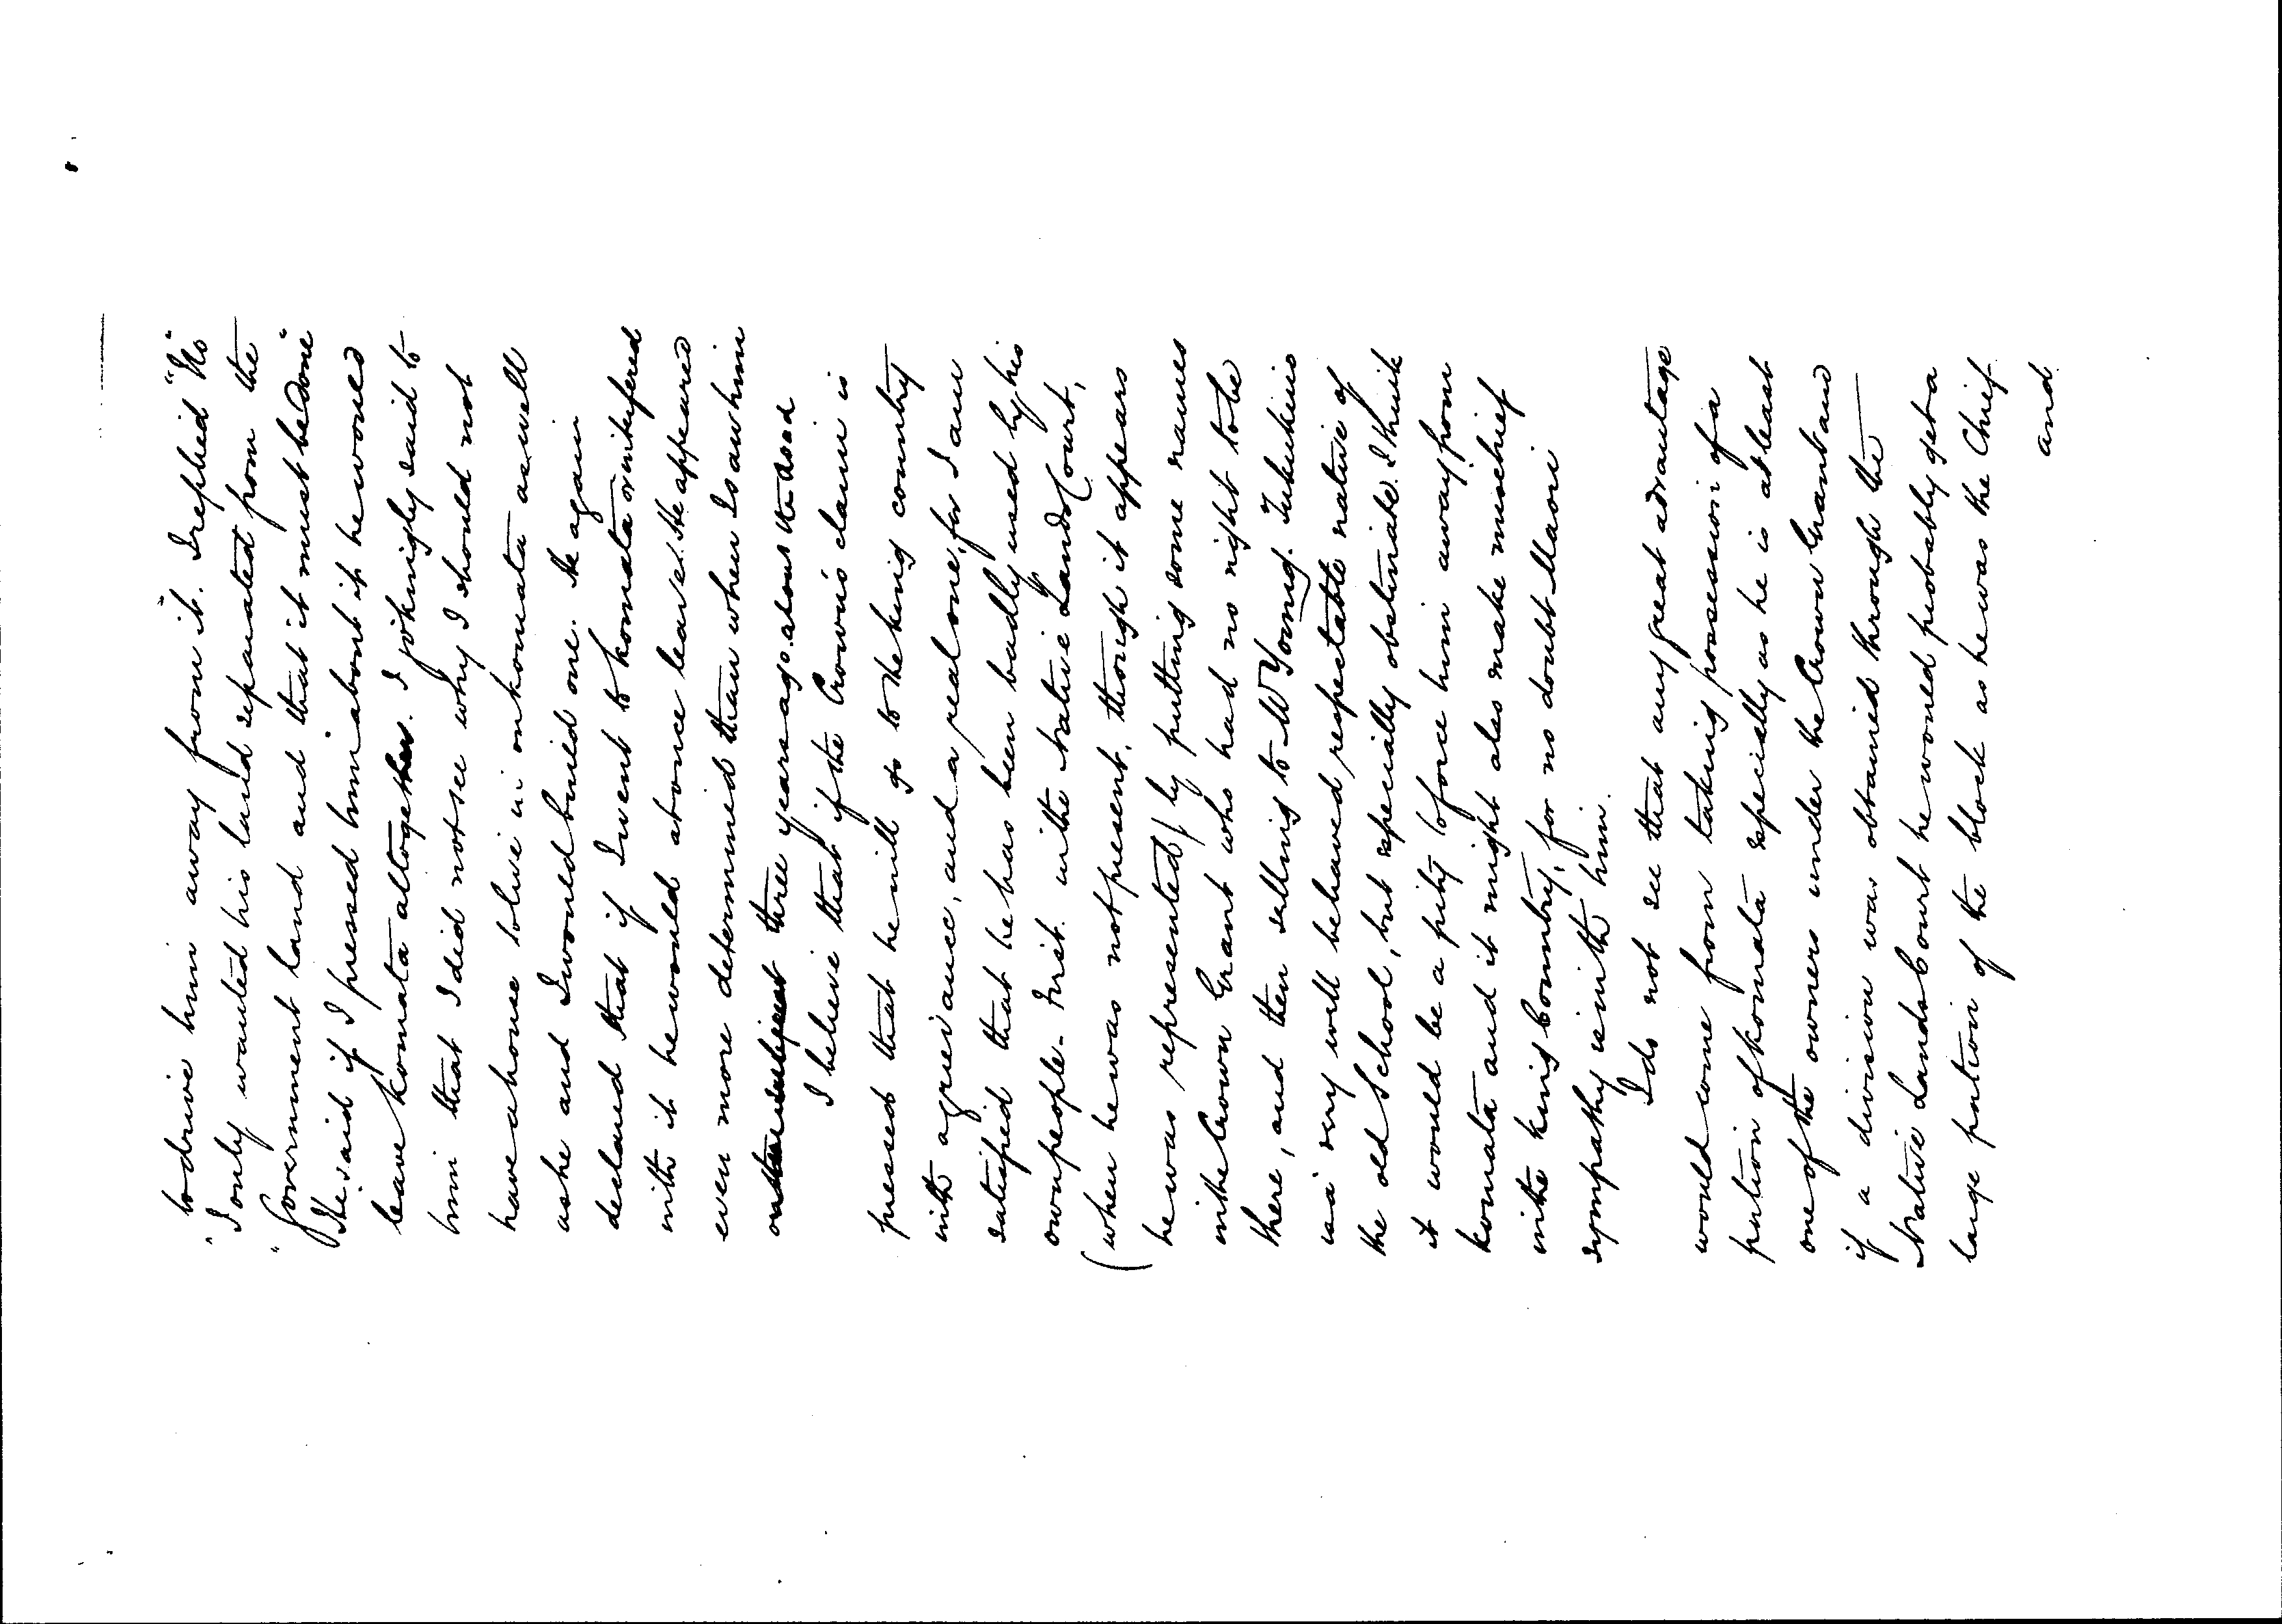 to drive him away from it. I replied "No"
"I only wanted his land separated from the
"Government land and that it must be done"
He said if I pressed him about it he would
leave Komata altogether. I jokingly said to
him that I did not see why I should not
have a house to live in on Komata as well
as he and I would build one. He again
declared that if I went to Komata or interfered
with it he would at once leave. He appeared
even more determined than when I saw him
on the subject three years ago.
I believe that if the Crown's claim is
pressed that he will go to the King country
with a grievance, and a real one, for I am
satisfied that he has been badly used by his
own people. First. in the Native Lands Court,
(when he was not present, though it appears
he was represented) by putting some names
in the Crown Grant who had no right to be
there, and then selling to Mr Young.
is a very well behaved respectable native of
the old School, but especially obstinate. I think
it would be a pity to force him away from
Komata and it might also make mischief
in the King Country, for no doubt Maori
sympathy is with him.
I do not see that any great advantage
would come from taking possession of a
portion of Komata especially as he is at least
one of the owners under the Crown Grant and
if a division was obtained through the
Native Lands Court he would probably get a
large portion of the block as he was the Chief
and